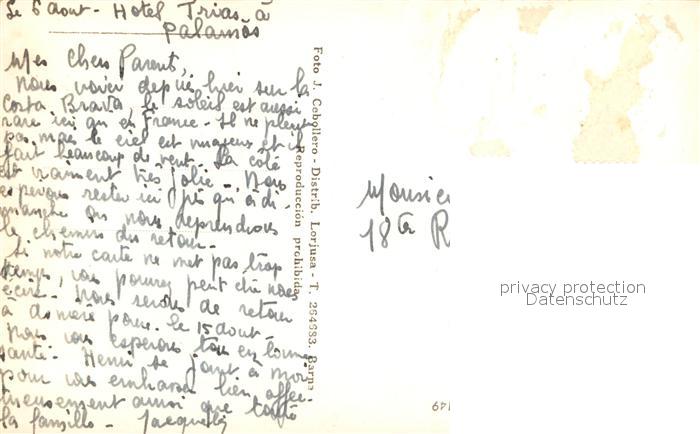 Le 6 aout - Hotel Trias à
Palamos
Mes Chers Parents,
Nous voici depuis hier sur la
Costa Brava, le soleil est aussi
rare ici qu'en France - Il ne pleut
pas mais le ciel est nuageux et il
fait beaucoup de vent. La côte
est vraiment très jolie - Nous
espérons rester ici jusqu'à di
manche où nous reprendrons
le chemin du retour -
Si notre carte ne met pas trop
temps, vous pourrez peut être nous
écrire. Nous serons de retour
à demeure pour le 15 aout -
Nous vous espérons tous en bonne
santé - Henri se joint à moi
pour vous embrasser bien affec
tueusement ainsi que toute
la famille - Jacqueline
Foto J. Cebollero - Distrib. Lorjusa - T. 264683. Barna
Reproducción prohibida
Monsie
18 ta R
privacy protection
Datenschutz
49